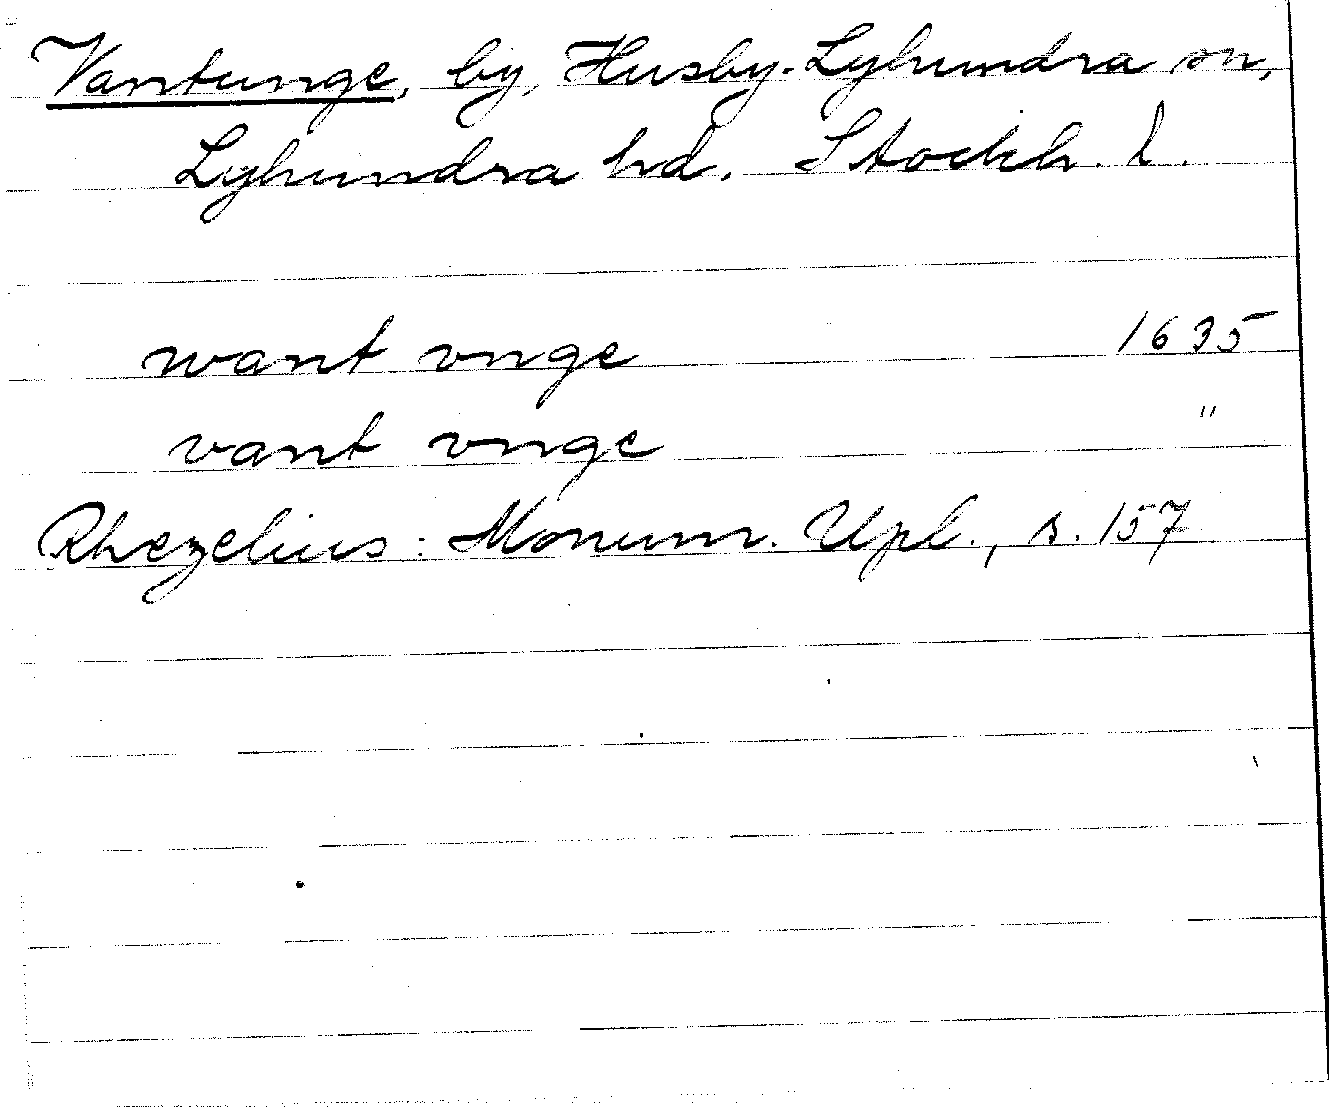 Vantunge, by, Husby-Lyhundra sn,
Lyhundra hd. Stockh. l.
want vnge 1635
vant vnge "
Rhezelius: Monum. Upl., s. 157